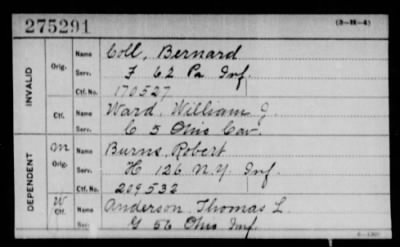 275291 (3-H-4)
INVALID
Orig. Name Coll, Bernard
Serv. F 62 Pa Inf.
Ctf. No. 170527
Ctf. Name Ward, William J.
Serv. C 5 Ohio Cav.
DEPENDENT
M Orig. Name Burns, Robert
Serv. H 126 N.Y Inf.
Ctf. No. 209532
W Ctf. Name Anderson, Thomas L.
Serv. G 56 Ohio Inf.